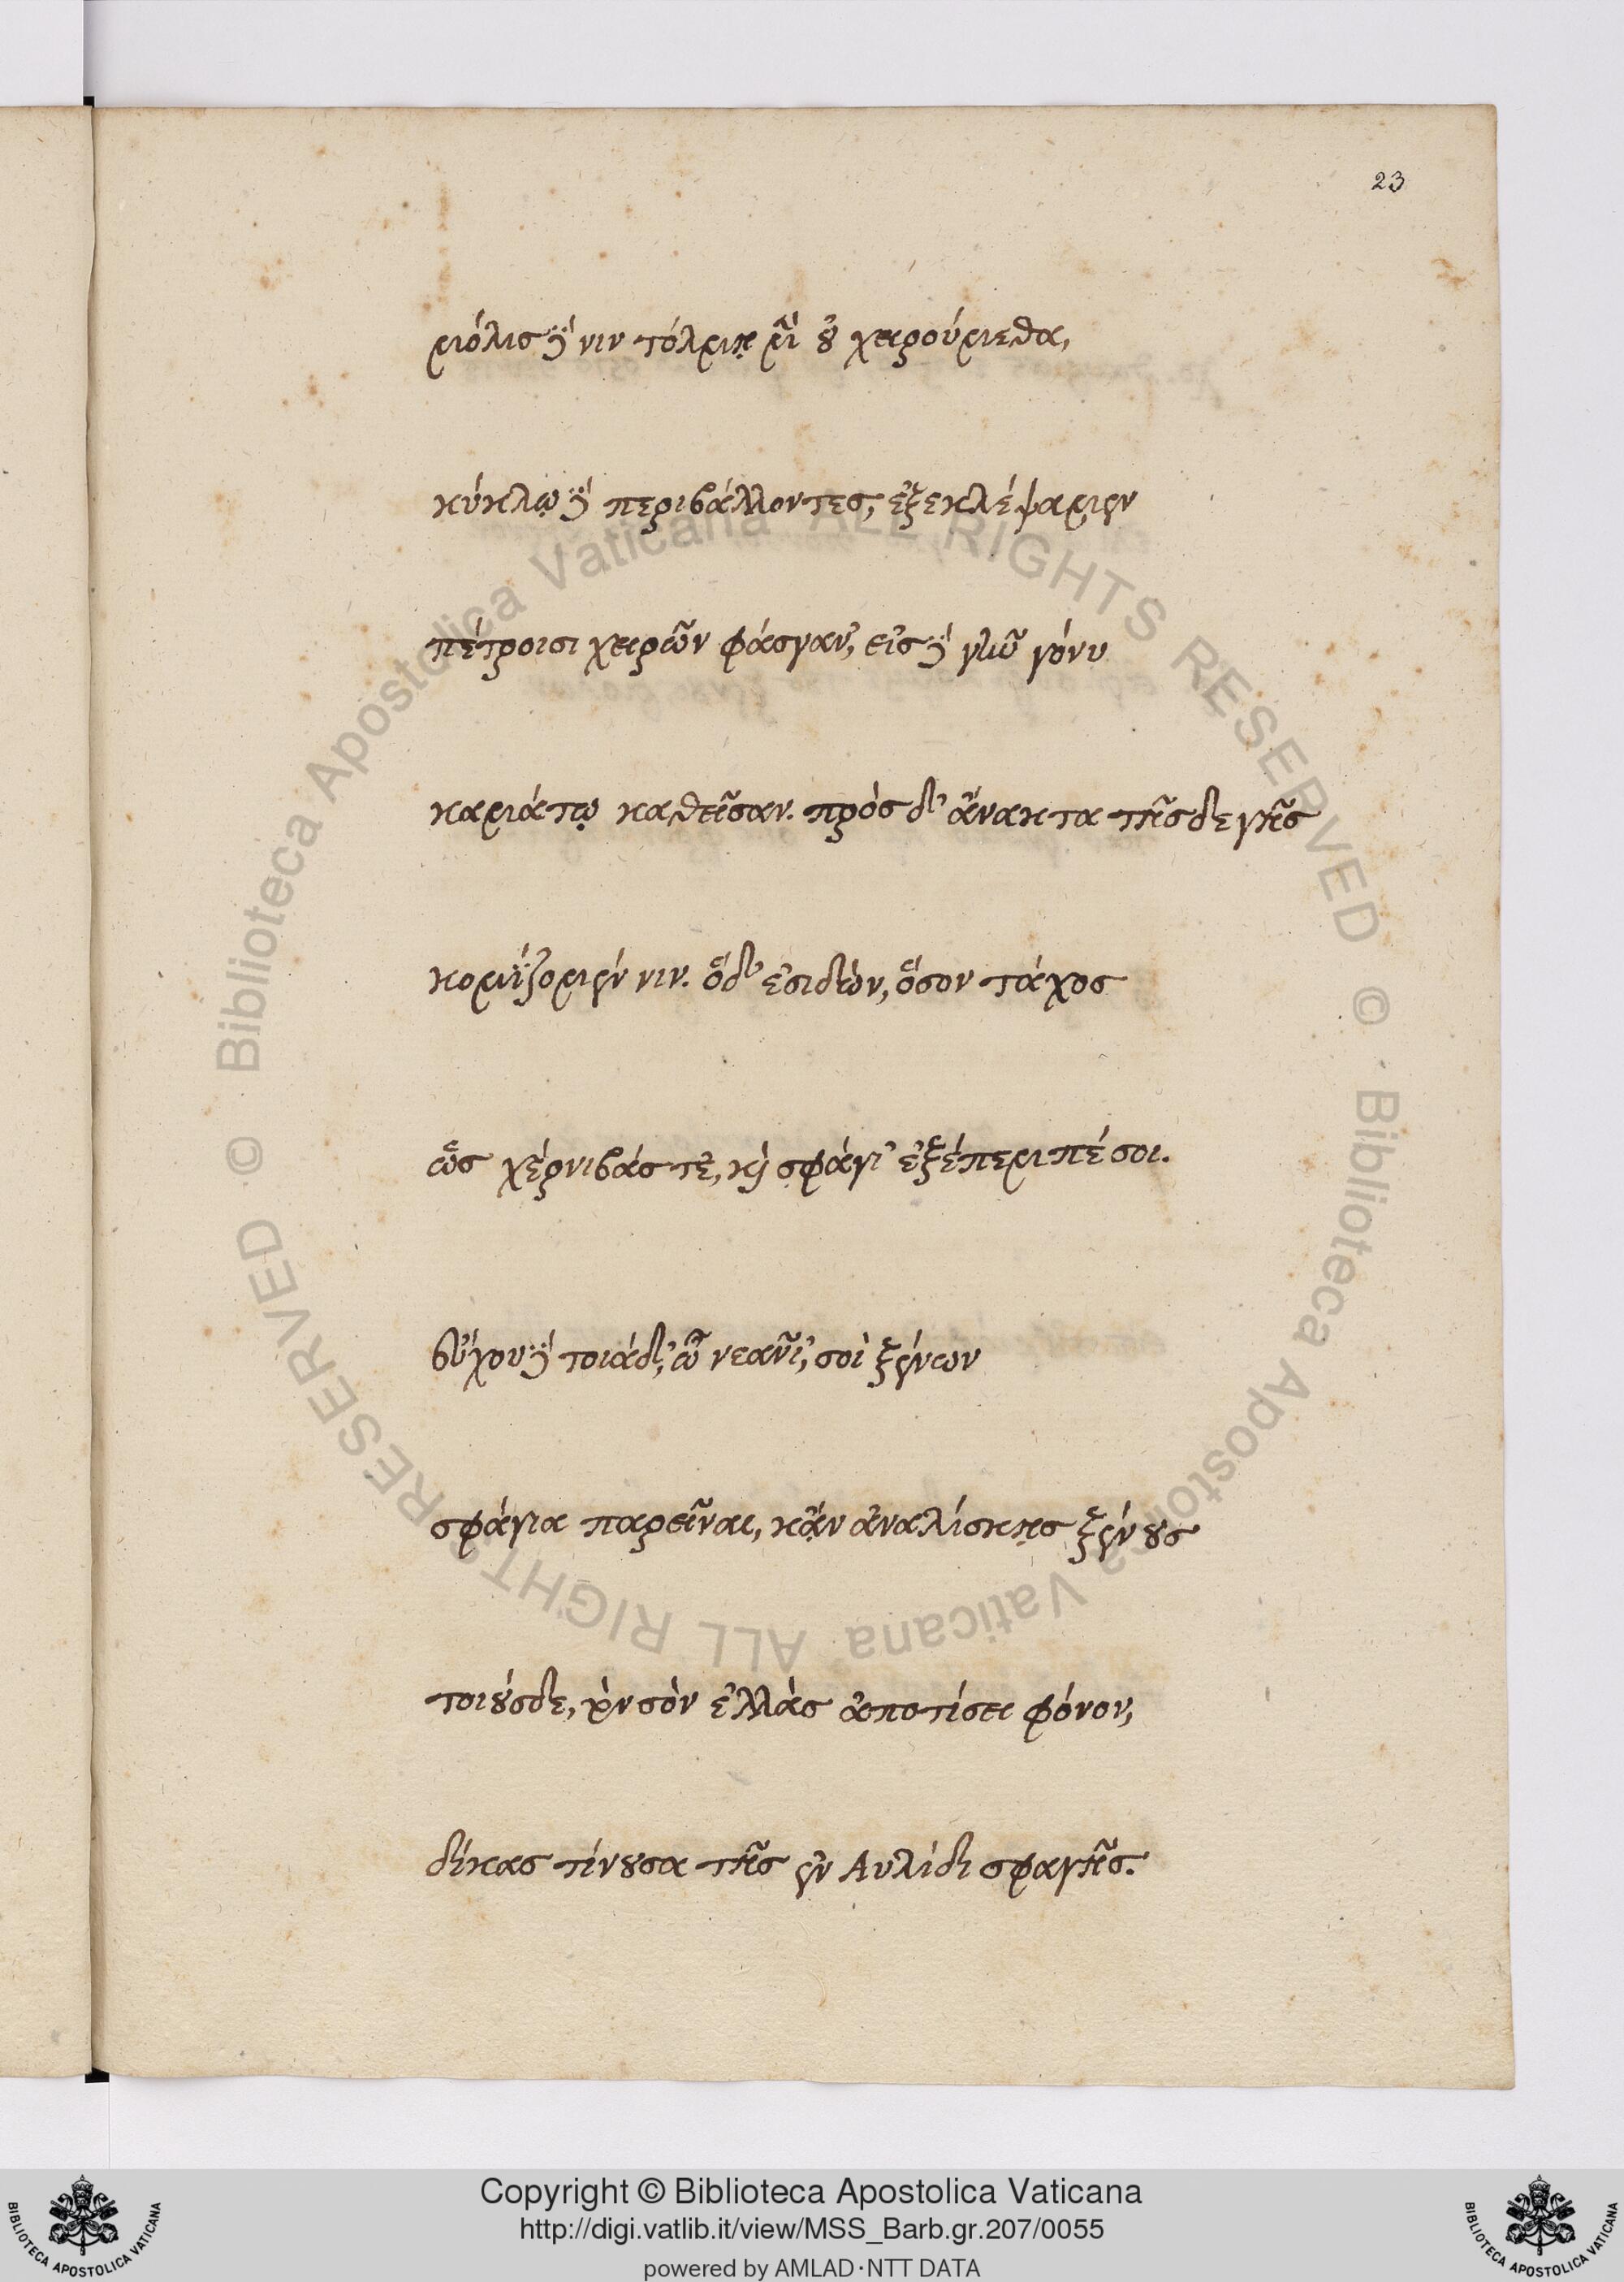 23
μόλις δέ νιν τόλμῃ μὲν οὐ χειρούμεθα,
κύκλῳ δὲ περιβάλλοντες, ἐξεκλέψαμεν
πέτροισι χειρῶν φάσγαν', εἰς δὲ γῆν γόνυ
καμάτῳ καθεῖσαν. πρὸς δ' ἄνακτα τῆσδε γῆς
κομίζομέν νιν. ὅδ' ἐσιδὼν, ὅσον τάχος
ὥς χέρνιβάς τε, καὶ σφάγι' ἐξέπεμπέ σοι.
εὔχου δὲ τοιάδ', ὦ νεᾶνί, σοὶ ξένων
σφάγια παρεῖναι, κᾂν ἀναλίσκῃς ξένους
τοιούσδε, τὸν σὸν ἑλλὰς ἀποτίσει φόνον,
δίκας τίνουσα τῆς ἐν Αυλίδι σφαγῆς.
© Biblioteca Apostolica Vaticana ALL RIGHTS RESERVED © Biblioteca Apostolica Vaticana ALL RIGHTS RESERVED
Copyright © Biblioteca Apostolica Vaticana
http://digi.vatlib.it/view/MSS_Barb.gr.207/0055
powered by AMLAD·NTT DATA
BIBLIOTECA APOSTOLICA VATICANA
BIBLIOTECA APOSTOLICA VATICANA